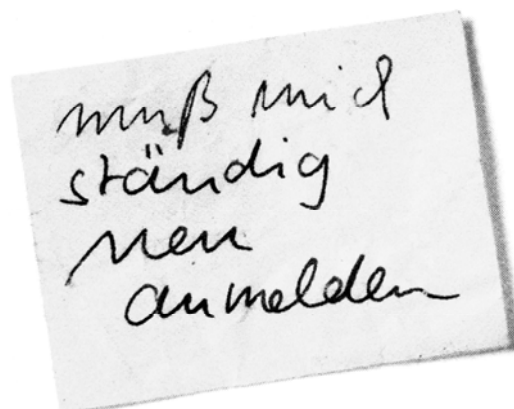 muß mich
ständig
neu
anmelden